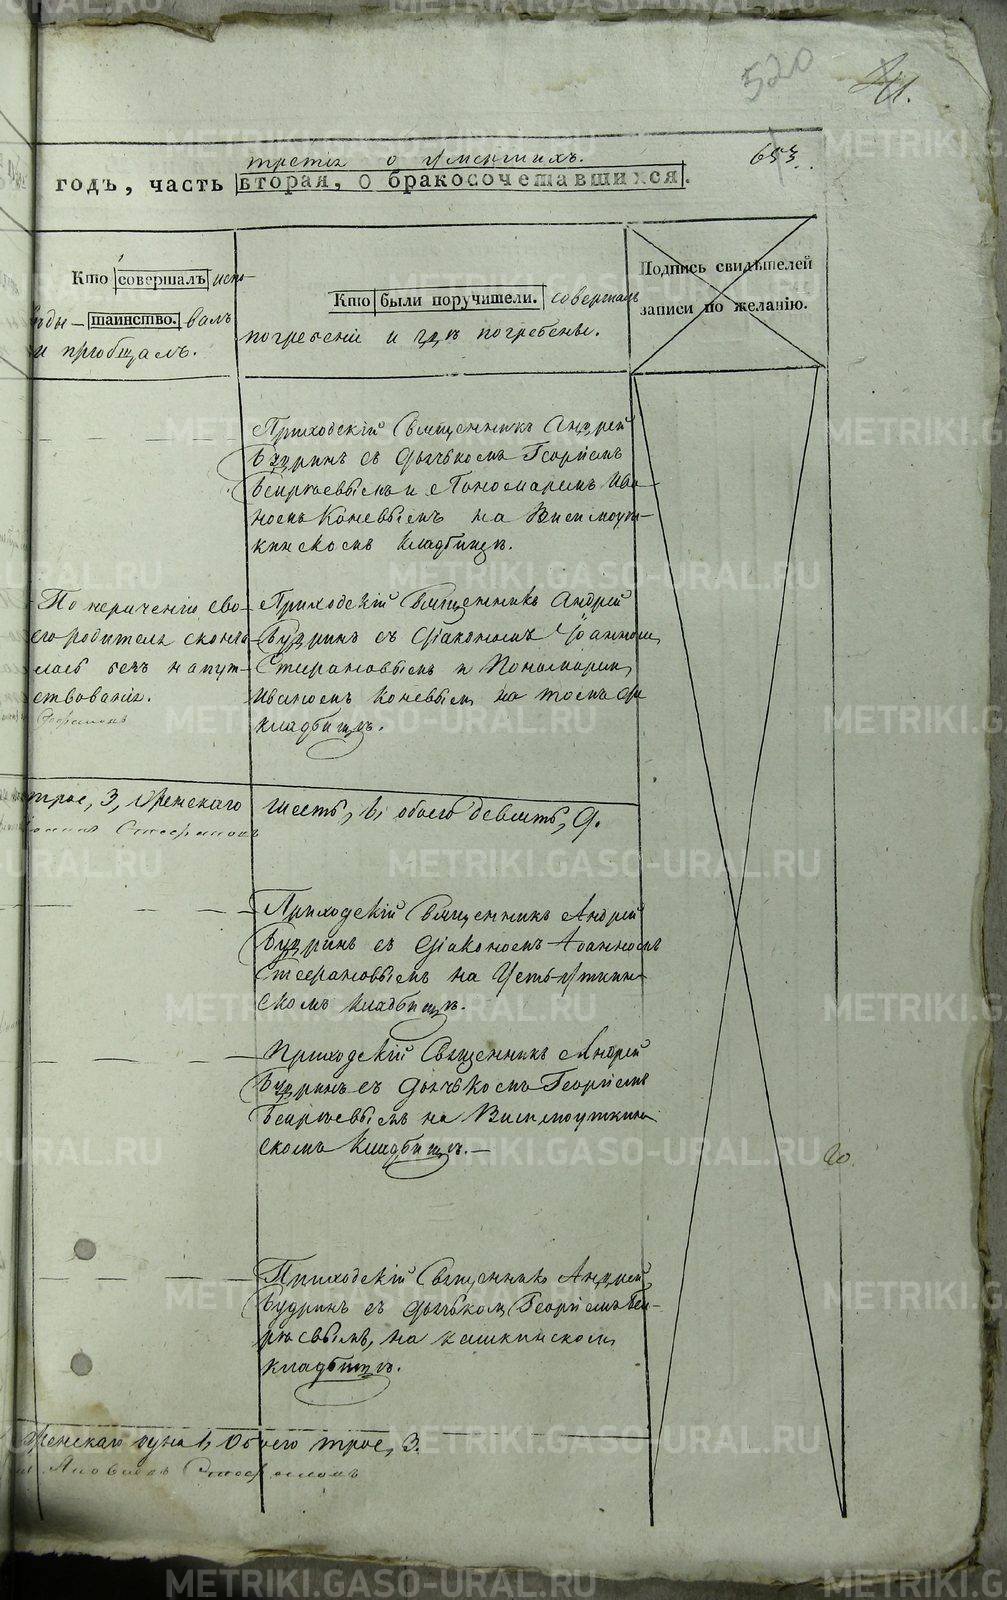 METRIKI.GASO-URAL.RU
520
41.
третія о умершихъ.
653.
годъ, часть вторая, о бракосочетавшихся.
Кто совершалъ испо-
вѣды- таинство. валъ
и пріобщалъ.
Кто были поручители. совершалъ
погребеніе и гдѣ погребены.
Подпись свидѣтелей
записи по желанію.
Приходскій Священникъ Андрей
Будринъ съ дьячькомъ Георгіемъ
и Пономаремъ Ива-
номъ Коневымъ на Висимоут-
кинскомъ кладбищѣ.
По нераченію сво-
его родителя сконча
лась безъ напут-
ствованія.
Приходскій Священникъ Андрей
Будринъ съ Діакономъ Іоанномъ
Стефановымъ и Пономаремъ
Иваномъ Коневымъ на томъ же
кладбищѣ.
трое, 3, женскаго
шесть, 6, обоего девять, 9.
Приходскій Священникъ Андрей
Будринъ съ Діакономъ Іоанномъ
Стефановымъ на Усть-Уткин-
скомъ кладбищѣ.
Приходскій Священникъ Андрей
Будринъ съ дьячькомъ Георгіемъ
на Висимоуткин
скомъ кладбищѣ.
Приходскій Священникъ Андрей
Будринъ съ дьячькомъ Георгіемъ
на кашкинскомъ
кладбищѣ.
женскаго одна 1, Обоего трое, 3.